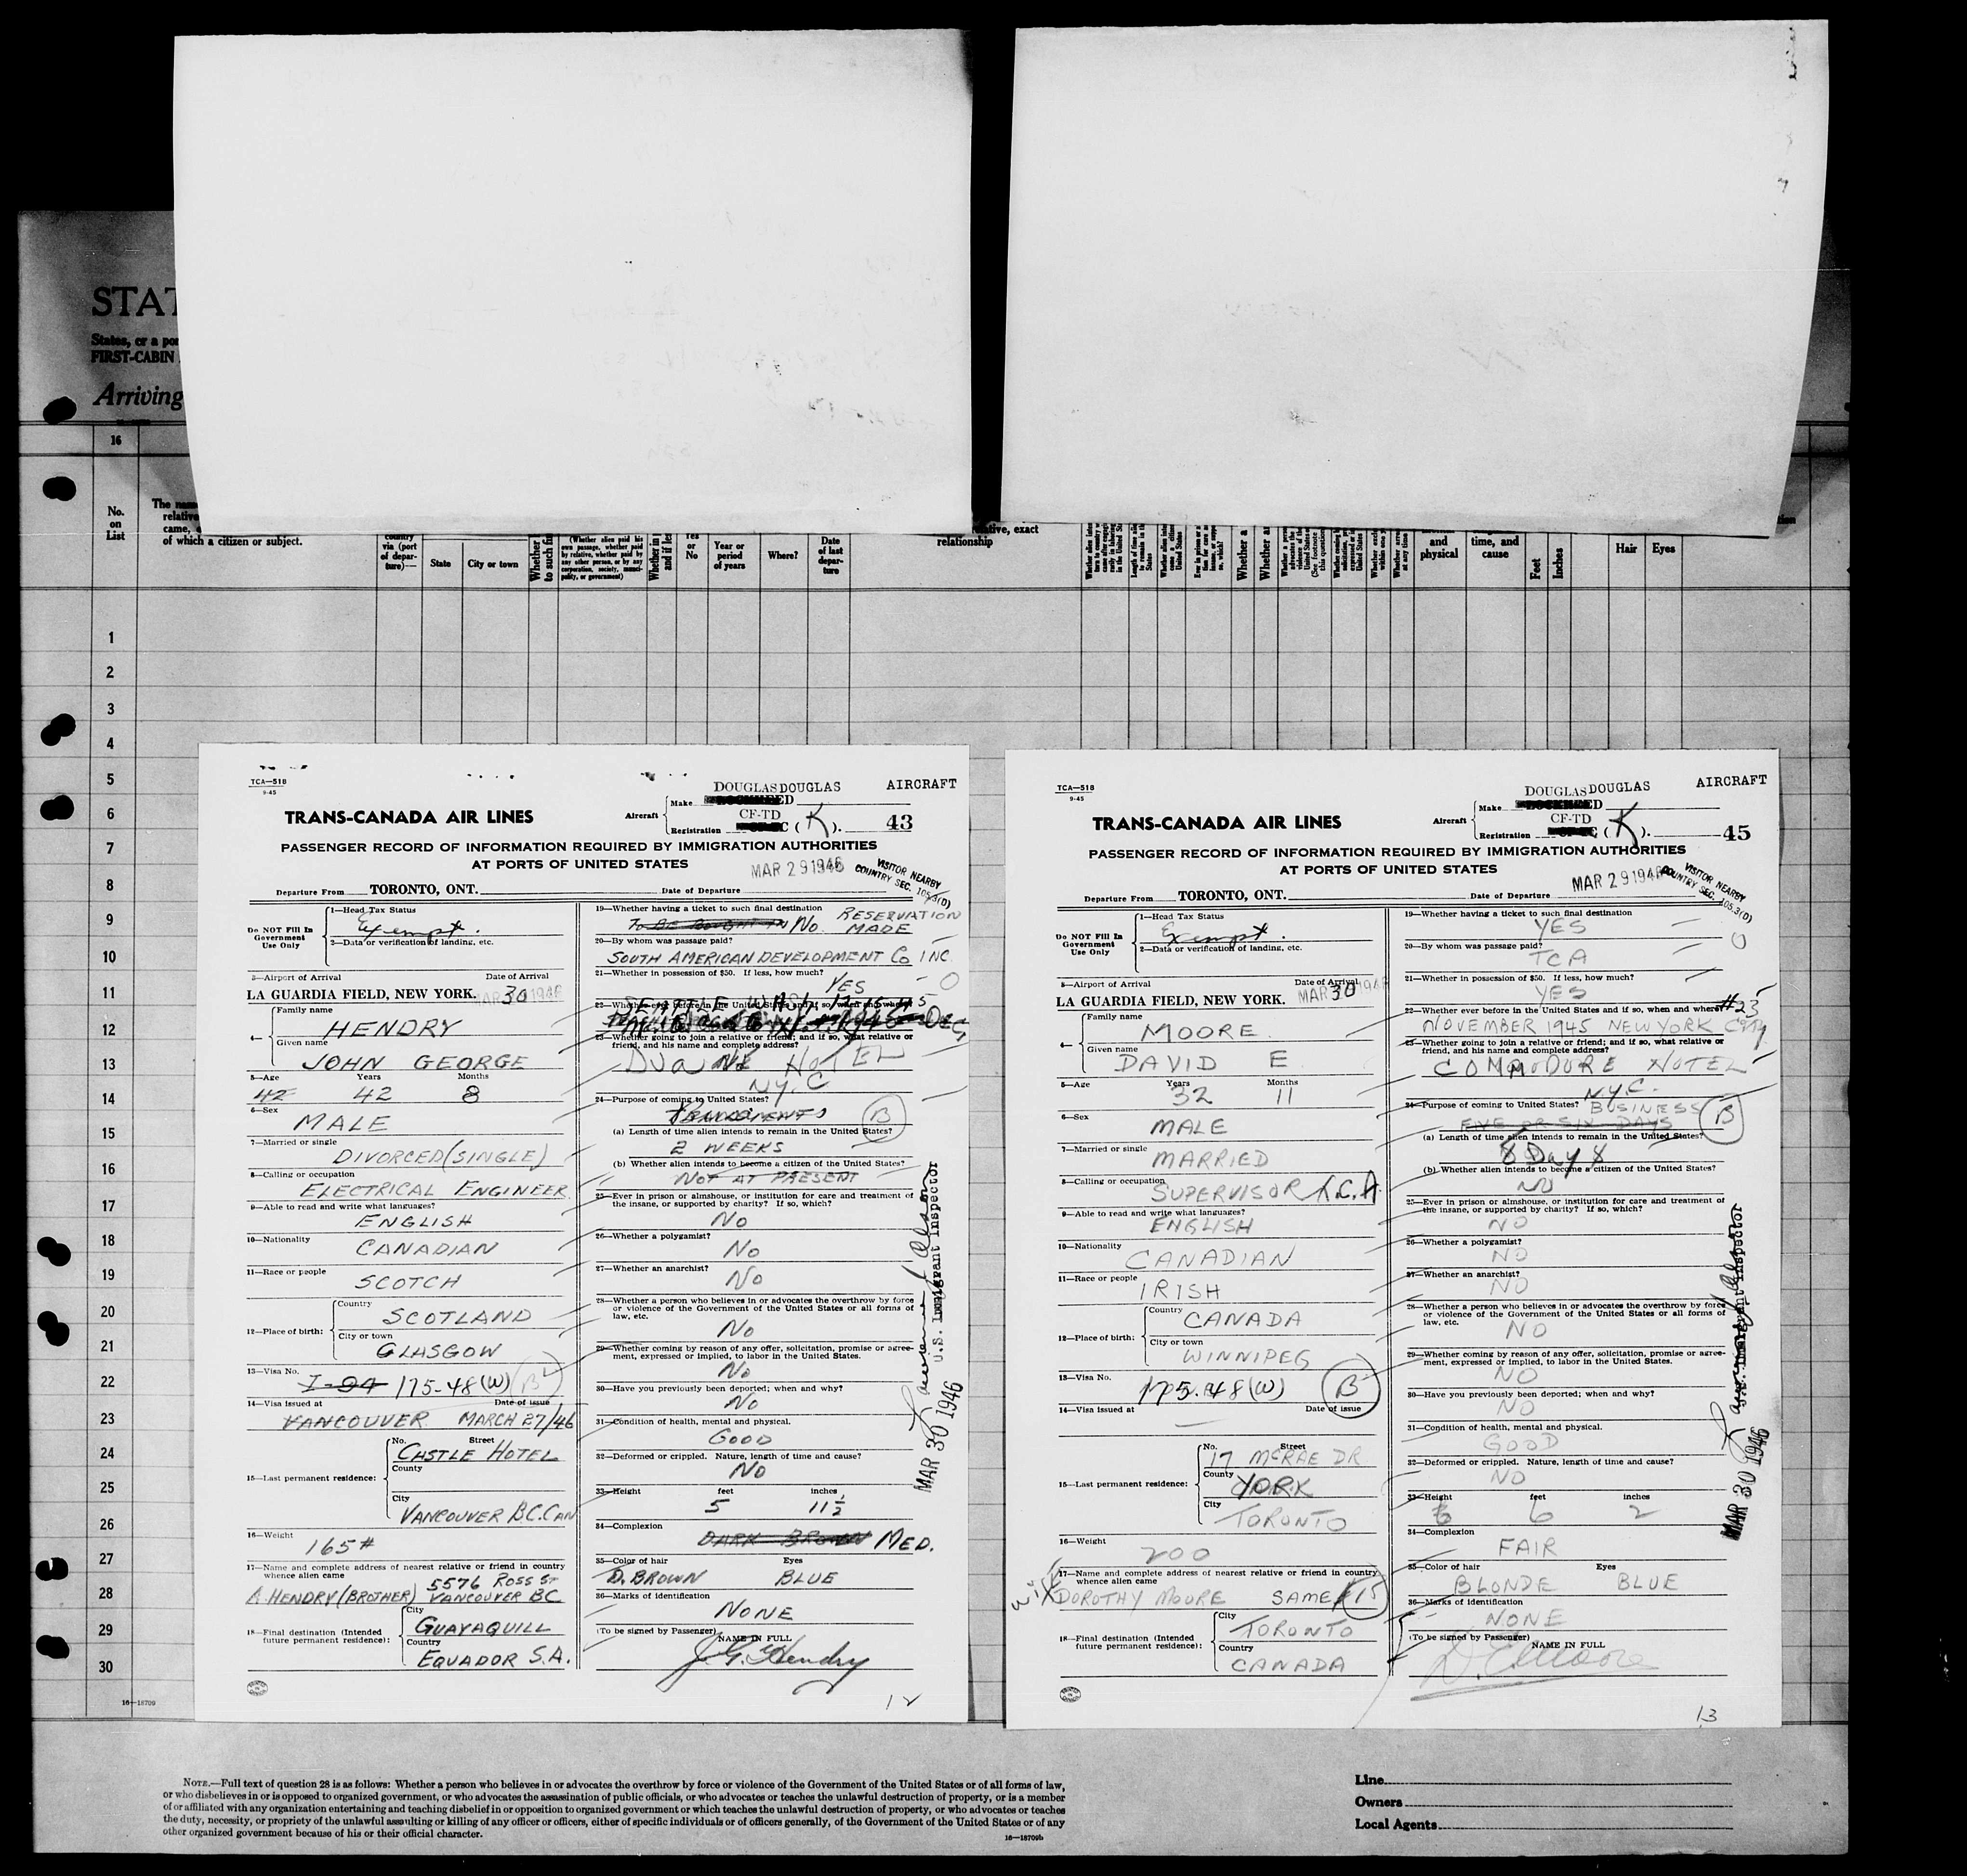 STAT
States, or a por
FIRST-CABIN
Arriving
16
No.
on
List
The name
relative
came,
of which a citizen or subject.
country
via (port
of depar-
ture)—
State
City or town
Whether
to such fi
(Whether alien paid his
own passage, whether paid
by relative, whether paid by
any other person, or by any
corporation, society, munici-
pality, or government)
Whether in
and if les
Yes
or
No
Year or
period
of years
Where?
Date
of last
depar-
ture
relative, exact
relationship
Whether a
and
physical
time, and
cause
Feet
Inches
Hair
Eyes
1
2
3
4
5
6
7
8
9
10
11
12
13
14
15
16
17
18
19
20
21
22
23
24
25
26
27
28
29
30
16—18709
TCA—518
9-45
TRANS-CANADA AIR LINES
DOUGLAS DOUGLAS AIRCRAFT
Aircraft
Make
CF-TD
Registration (K). 43
PASSENGER RECORD OF INFORMATION REQUIRED BY IMMIGRATION AUTHORITIES
AT PORTS OF UNITED STATES
MAR 29 1946
VISITOR NEARBY
COUNTRY SEC. 105.3(D)
Departure From TORONTO, ONT. Date of Departure
Do NOT Fill In
Government
Use Only
1—Head Tax Status
Exempt.
2—Data or verification of landing, etc.
3—Airport of Arrival Date of Arrival
LA GUARDIA FIELD, NEW YORK. MAR 30 1946
4—
Family name
HENDRY
Given name
JOHN GEORGE
5—Age Years Months
42 42 8
6—Sex
MALE
7—Married or single
DIVORCED (SINGLE)
8—Calling or occupation
ELECTRICAL ENGINEER
9—Able to read and write what languages?
ENGLISH
10—Nationality
CANADIAN
11—Race or people
SCOTCH
12—Place of birth:
Country
SCOTLAND
City or town
GLASGOW
13—Visa No.
I-94 175-48 (W) B
14—Visa issued at Date of issue
VANCOUVER MARCH 27/46
15—Last permanent residence:
No. Street
CASTLE HOTEL
County
City
VANCOUVER B.C. CAN
16—Weight
165 #
17—Name and complete address of nearest relative or friend in country
whence alien came
HENDRY (BROTHER) 5576 ROSS ST
VANCOUVER BC
18—Final destination (Intended
future permanent residence):
City
GUAYAQUILL
Country
EQUADOR S.A.
19—Whether having a ticket to such final destination
TO BE BOUGHT IN No RESERVATION
MADE
20—By whom was passage paid?
SOUTH AMERICAN DEVELOPMENT Co INC.
21—Whether in possession of $50. If less, how much?
YES
22—Whether ever before in the United States and if so, when and where?
SEATTLE WASH.
23—Whether going to join a relative or friend; and if so, what relative or
friend, and his name and complete address?
HOTEL
N.Y.C
24—Purpose of coming to United States?
B
(a) Length of time alien intends to remain in the United States?
2 WEEKS
(b) Whether alien intends to become a citizen of the United States?
NOT AT PRESENT
25—Ever in prison or almshouse, or institution for care and treatment of
the insane, or supported by charity? If so, which?
No
26—Whether a polygamist?
No
27—Whether an anarchist?
No
28—Whether a person who believes in or advocates the overthrow by force
or violence of the Government of the United States or all forms of
law, etc.
No
29—Whether coming by reason of any offer, solicitation, promise or agree-
ment, expressed or implied, to labor in the United States.
No
30—Have you previously been deported; when and why?
No
31—Condition of health, mental and physical.
GOOD
32—Deformed or crippled. Nature, length of time and cause?
No
33—Height feet inches
5 11½
34—Complexion
DARK BROWN MED.
35—Color of hair Eyes
D. BROWN BLUE
36—Marks of identification
NONE
(To be signed by Passenger) NAME IN FULL
J.G. Hendry
U.S. Immigrant Inspector
MAR 30 1946
12
TCA—518
9-45
TRANS-CANADA AIR LINES
DOUGLAS DOUGLAS AIRCRAFT
Aircraft
Make
CF-TD
Registration (K). 45
PASSENGER RECORD OF INFORMATION REQUIRED BY IMMIGRATION AUTHORITIES
AT PORTS OF UNITED STATES
MAR 29 1946
VISITOR NEARBY
COUNTRY SEC. 105.3(D)
Departure From TORONTO, ONT. Date of Departure
Do NOT Fill In
Government
Use Only
1—Head Tax Status
Exempt.
2—Data or verification of landing, etc.
3—Airport of Arrival Date of Arrival
LA GUARDIA FIELD, NEW YORK. MAR 30 1946
4—
Family name
MOORE
Given name
DAVID E
5—Age Years Months
32 11
6—Sex
MALE
7—Married or single
MARRIED
8—Calling or occupation
SUPERVISOR T.C.A.
9—Able to read and write what languages?
ENGLISH
10—Nationality
CANADIAN
11—Race or people
IRISH
12—Place of birth:
Country
CANADA
City or town
WINNIPEG
13—Visa No.
175.48 (W) B
14—Visa issued at Date of issue
15—Last permanent residence:
No. Street
17 McRAE DR
County
YORK
City
TORONTO
16—Weight
200
17—Name and complete address of nearest relative or friend in country
whence alien came
wife DOROTHY MOORE SAME #15
18—Final destination (Intended
future permanent residence):
City
TORONTO
Country
CANADA
19—Whether having a ticket to such final destination
YES
20—By whom was passage paid?
TCA
21—Whether in possession of $50. If less, how much?
YES
22—Whether ever before in the United States and if so, when and where? #23
NOVEMBER 1945 NEW YORK CITY
23—Whether going to join a relative or friend; and if so, what relative or
friend, and his name and complete address?
COMMODORE HOTEL
N.Y.C.
24—Purpose of coming to United States? BUSINESS B
FIVE OR SIX DAYS
(a) Length of time alien intends to remain in the United States?
8 Days
(b) Whether alien intends to become a citizen of the United States?
NO
25—Ever in prison or almshouse, or institution for care and treatment of
the insane, or supported by charity? If so, which?
NO
26—Whether a polygamist?
NO
27—Whether an anarchist?
NO
28—Whether a person who believes in or advocates the overthrow by force
or violence of the Government of the United States or all forms of
law, etc.
NO
29—Whether coming by reason of any offer, solicitation, promise or agree-
ment, expressed or implied, to labor in the United States.
NO
30—Have you previously been deported; when and why?
NO
31—Condition of health, mental and physical.
GOOD
32—Deformed or crippled. Nature, length of time and cause?
NO
33—Height feet inches
6 6 2
34—Complexion
FAIR
35—Color of hair Eyes
BLONDE BLUE
36—Marks of identification
NONE
(To be signed by Passenger) NAME IN FULL
D.E. Moore
U.S. Immigrant Inspector
MAR 30 1946
13
NOTE.—Full text of question 28 is as follows: Whether a person who believes in or advocates the overthrow by force or violence of the Government of the United States or of all forms of law,
or who disbelieves in or is opposed to organized government, or who advocates the assassination of public officials, or who advocates or teaches the unlawful destruction of property, or is a member
of or affiliated with any organization entertaining and teaching disbelief in or opposition to organized government or which teaches the unlawful destruction of property, or who advocates or teaches
the duty, necessity, or propriety of the unlawful assaulting or killing of any officer or officers, either of specific individuals or of officers generally, of the Government of the United States or of any
other organized government because of his or their official character.
16—18709b
Line
Owners
Local Agents